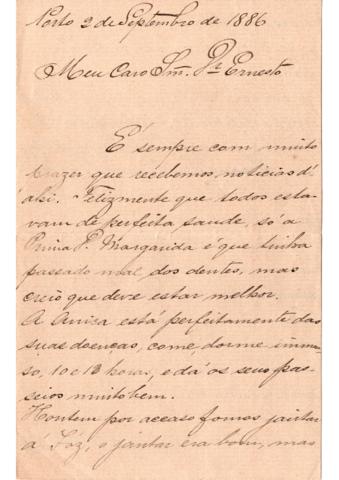 Porto 2 de Septembro de 1886
Meu Caro Snr. Dr. Ernesto
É sempre com muito
prazer que recebemos, noticias d'
ahi. Felizmente que todos esta-
vam de perfeita saude, só a
Prima D. Margarida é que tinha
passado mal dos dentes, mas
creio que deve estar melhor.
A Anica está perfeitamente das
suas doenças, come, dorme immen-
so, 10 e 12 horas, e dá os seus pas-
seios muito bem.
Hontem por accaso fomos jantar
á Foz, o jantar era bom, mas